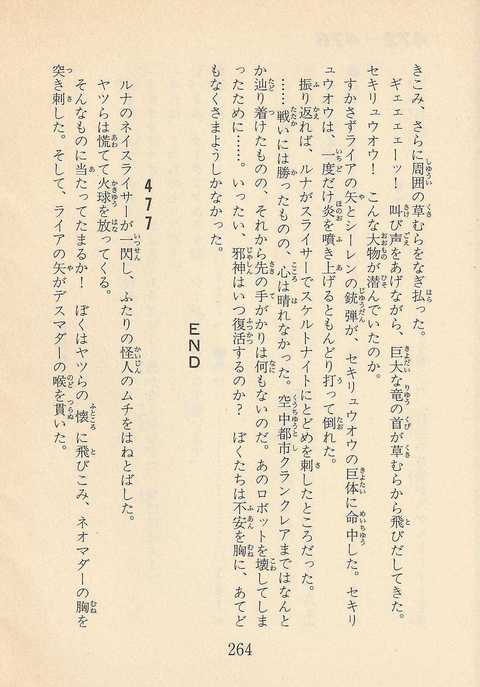 きこみ、さらに周囲の草むらをなぎ払った。
ギェェェェーッ！　叫び声をあげながら、巨大な竜の首が草むらから飛びだしてきた。
セキリュウオウ！　こんな大物が潜んでいたのか。
すかさずライアの矢とシーレンの銃弾が、セキリュウオウの巨体に命中した。セキリ
ュウオウは、一度だけ炎を噴き上げるともんどり打って倒れた。
振り返れば、ルナがスライサーでスケルトナイトにとどめを刺したところだった。
……戦いには勝ったものの、心は晴れなかった。空中都市クランクレアまではなんと
か辿り着けたものの、それから先の手がかりは何もないのだ。あのロボットを壊してしま
ったために……。いったい、邪神はいつ復活するのか？　ぼくたちは不安を胸に、あてど
もなくさまようしかなかった。
END
477
ルナのネイスライサーが一閃し、ふたりの怪人のムチをはねとばした。
ヤツらは慌てて火球を放ってくる。
そんなものに当たってたまるか！　ぼくはヤツらの懐に飛びこみ、ネオマダーの胸を
突き刺した。そして、ライアの矢がデスマダーの喉を貫いた。
264